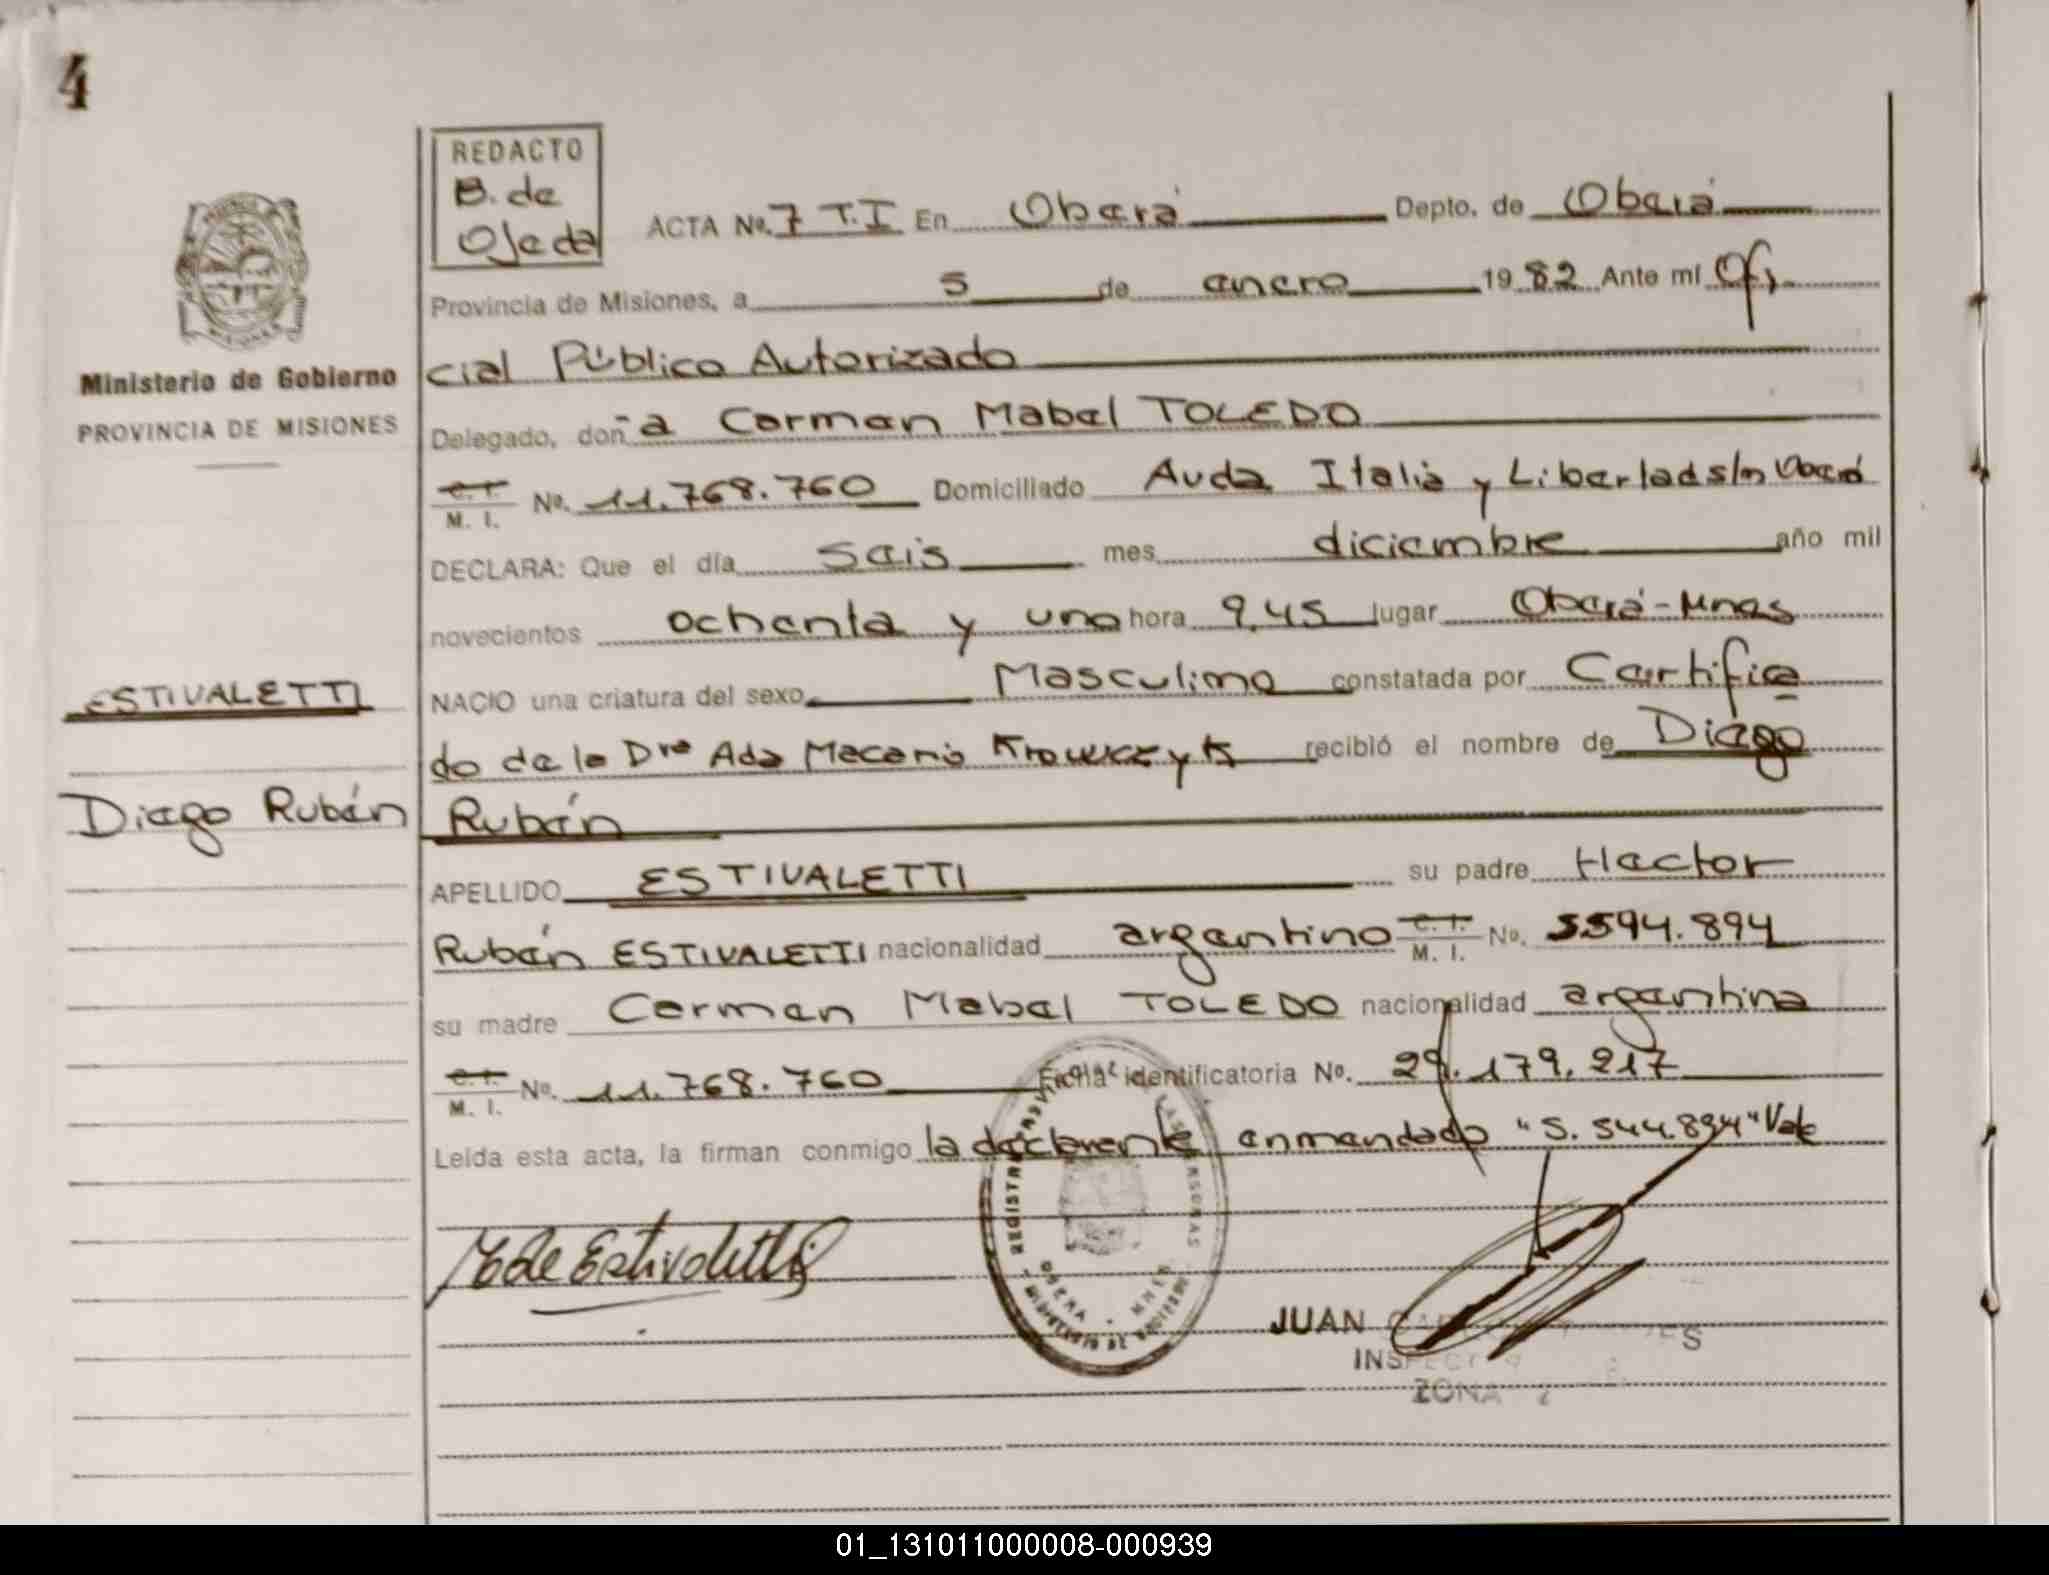 4
REDACTO
B. de
Ojeda
ACTA No. 7 T.I En Oberá Depto. de Oberá
Provincia de Misiones, a 5 de enero 1982 Ante mí Ofi
cial Público Autorizado
Ministerio de Gobierno
PROVINCIA DE MISIONES
Delegado, doña Carmen Mabel TOLEDO
C.I. M. I. No. 11.768.760 Domiciliado Avda Italia y Libertad s/n Oberá
DECLARA: Que el día seis mes diciembre año mil
novecientos ochenta y uno hora 9,45 lugar Oberá-Mnes
ESTIVALETTI
NACIO una criatura del sexo Masculino constatada por Certifica
do de la Dra Ada recibió el nombre de Diego
Diego Rubén
Rubén
APELLIDO ESTIVALETTI su padre Hector
Rubén ESTIVALETTI nacionalidad argentino C.I. M. I. No. 5.544.894
su madre Carmen Mabel TOLEDO nacionalidad argentina
C.I. M. I. No. 11.768.760 Ficha identificatoria No. 29.179.217
Leída esta acta, la firman conmigo la declarente enmendado "5.544.894" Vale
M de Estivaletti
REGISTR PERSONAS
OBERA MNES
MINISTERIO DE GOBIERNO
JUAN
INSPECTOR
ZONA 2
01_131011000008-000939